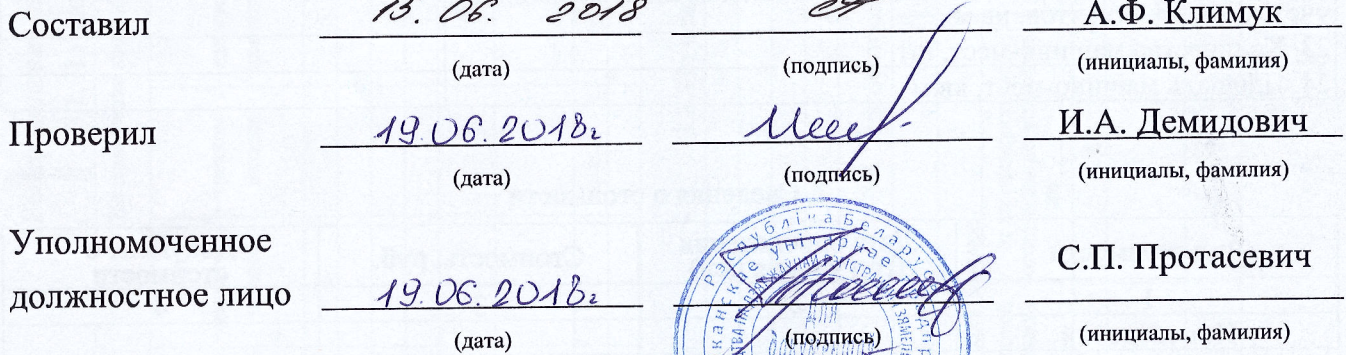 Составил 13. 06. 2018 А.Ф. Климук
(дата) (подпись) (инициалы, фамилия)
Проверил 19.06.2018г И.А. Демидович
(дата) (подпись) (инициалы, фамилия)
Уполномоченное
должностное лицо 19.06.2018г С.П. Протасевич
(дата) (подпись) (инициалы, фамилия)
Рэспубліка Беларусь
унітарнае
для